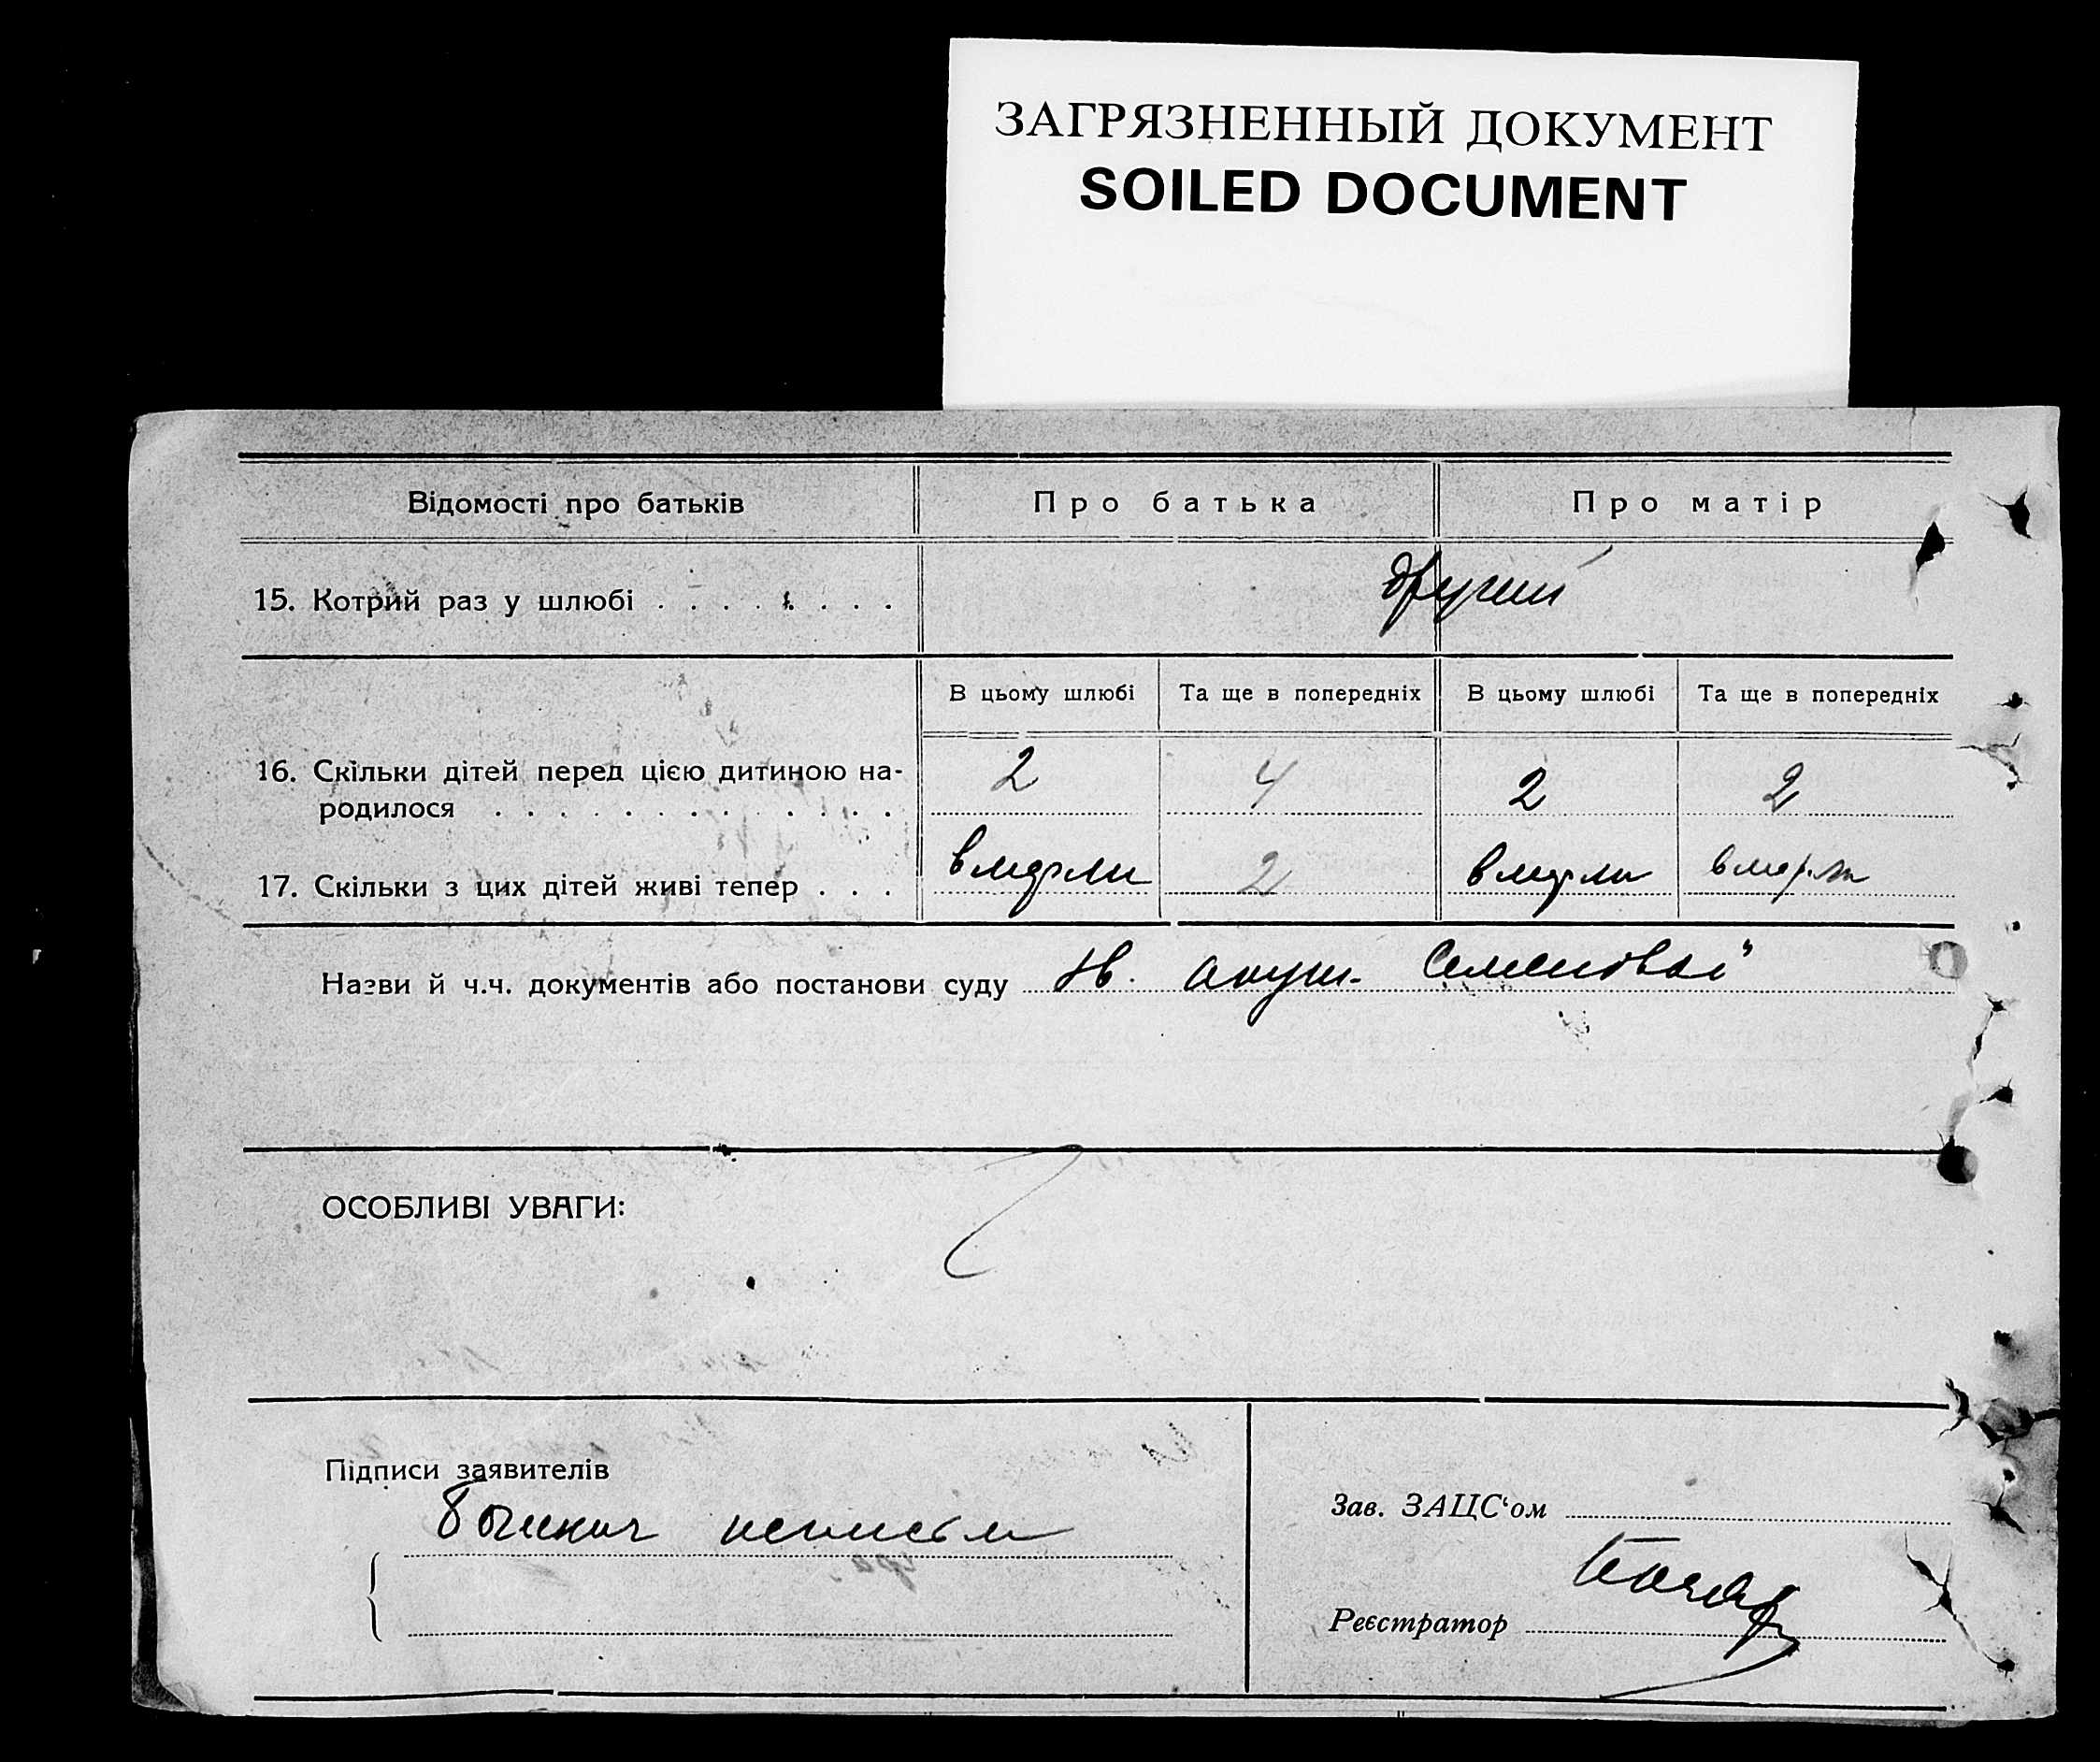 ЗАГРЯЗНЕННЫЙ ДОКУМЕНТ
SOILED DOCUMENT
Відомості про батьків Про батька Про матір
15. Котрий раз у шлюбі . . . . . . . другий
В цьому шлюбі Та ще в попередніх В цьому шлюбі Та ще в попередніх
16. Скільки дітей перед цією дитиною на- 2 4 2 2
родилося . . . . . . . . . . . . .
17. Скільки з цих дітей живі тепер . . . вмерли 2 вмерли вмерли
Назви й ч.ч. документів або постанови суду акуш. Семеновой
ОСОБЛИВІ УВАГИ:
Підписи заявителів
Зав. ЗАЦС'ом
Реєстратор